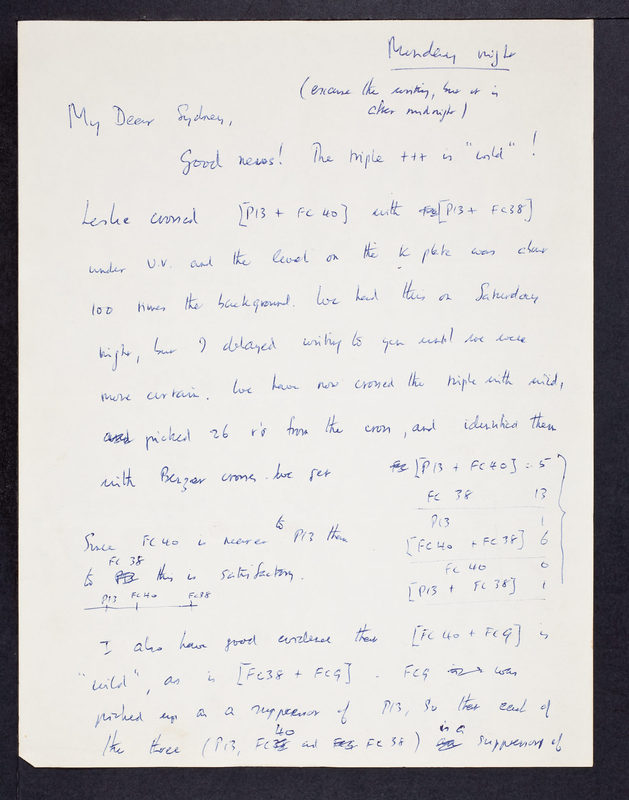 Monday night
(excuse the writing, but it is
after midnight)
My Dear Sydney,
Good news! The triple +++ is "wild"!
Leslie crossed [P13 + FC 40] with [P13 + FC38]
under U.V. and the level on the K plate was about
100 times the background. We had this on Saturday
night, but I delayed writing to you until we were
more certain. We have now crossed the triple with wild,
picked 26 r's from the cross, and identified them
with Benzer crosses. We get
[P13 + FC40] = 5
FC 38 13
P13 1
[FC40 + FC38] 6
FC 40 0
[P13 + FC38] 1
Since FC 40 is nearer to P13 than
to FC 38 this is satisfactory.
P13 FC40 FC38
I also have good evidence that [FC40 + FC9] is
"wild", as is [FC38 + FC9]. FC9 was
picked up as a suppressor of P13, so that each of
the three (P13, FC 40 and FC 38) is a suppressor of